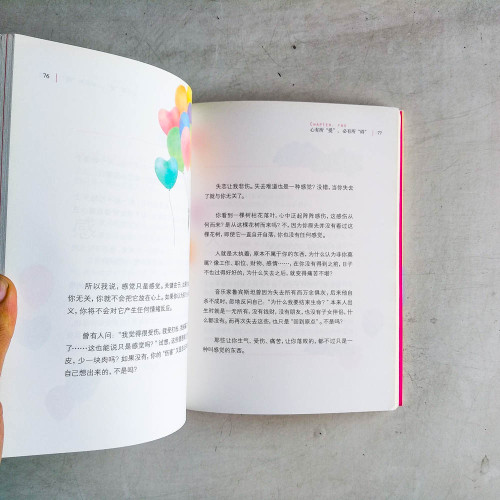 76
所以我说，感觉只是感觉。
你无关，你就不会把它放在心上。如果你
义，你将不会对它产生任何情绪反应。
曾有人问：“我觉得很受伤，我
了……这也能说只是感觉吗？”试想，
皮，少一块肉吗？如果没有，你的“伤害”
自己想出来的，不是吗？
CHAPTER TWO
心有所“爱”，必有所“碍” 77
失恋让我悲伤。失去难道也是一种感觉？没错，当你失去
了就与你无关了。
你看到一棵树枯花落叶，心中泛起阵阵感伤，这感伤从
何而来？是从这棵花树而来吗？不，因为你原先并没有看过这
棵花树，即便它一直自开自落，你也没有任何感觉。
人就是太执着，原本不属于你的东西，为什么认为非你莫
属？像工作、职位、财物、感情……，在你没有得到之前，日子
不也过得好好的，为什么失去之后，就变得痛苦不堪？
音乐家鲁宾斯坦曾因为失去所有四万金佛友，后来他自
杀不成时，忽有反问自己：“为什么我要结束生命？”本来人出
生时就是一无所有，没有钱财，没有朋友，也没有子女伴侣，什
么都没有。而再次失去这些，也只是“回到原点”，不是吗？
那些让你生气、受伤、痛苦，让你落泪的，都不过只是一
种叫感觉的东西。